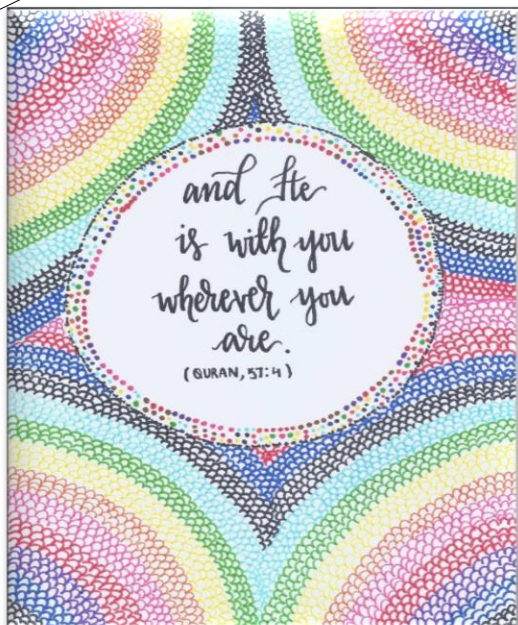 and He
is with you
wherever you
are.
(QURAN, 57:4)